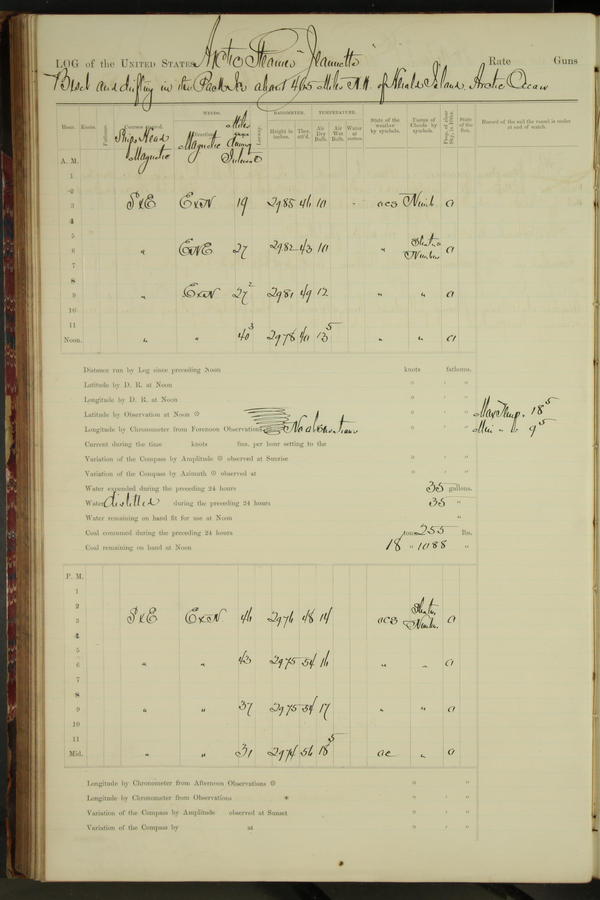 LOG of the UNITED STATES Arctic Steamer "Jeannette" Rate Guns
Beset and drifting in the Pack Ice about 465 Miles N.W. of Herald Island, Arctic Ocean
WINDS. BAROMETER. TEMPERATURE.
Hour. Knots. Fathoms. Courses steered. Direction. Leeway. Height in inches. Ther. att'd. Air Dry Bulb. Air Wet Bulb. Water at surface. State of the weather by symbols. Forms of Clouds by symbols. State of the Sea. Record of the sail the vessel is under at end of watch.
Ship's Head Magnetic Magnetic Miles during Interval
A. M.
1
2
3 S x E E x N 19 2985 46 10 ocs Nimb 0
4
5
6 " ENE 27 2982 43 10 " Stratus Nimbus 0
7
8
9 " E x N 27 2 2981 49 12 " " 0
10
11
Noon. " " 40 3 2978 40 13 5 " " 0
Distance run by Log since preceding Noon knots fathoms.
Latitude by D. R. at Noon ° ′ ″
Longitude by D. R. at Noon ° ′ ″
Latitude by Observation at Noon ☉ ° ′ ″ Max Temp. 18 5
Longitude by Chronometer from Forenoon Observations No observations ° ′ ″ Min " " 9 5
Current during the time knots fms. per hour setting to the
Variation of the Compass by Amplitude ☉ observed at Sunrise ° ′ ″
Variation of the Compass by Azimuth ☉ observed at ° ′ ″
Water expended during the preceding 24 hours 35 gallons.
Water distilled during the preceding 24 hours 35 "
Water remaining on hand fit for use at Noon "
Coal consumed during the preceding 24 hours tons 255 lbs.
Coal remaining on hand at Noon 18 " 1088 "
P. M.
1
2
3 S x E E x N 46 2976 48 14 ocs Stratus Nimbus 0
4
5
6 " " 43 2975 54 16 " " 0
7
8
9 " " 37 2975 54 17 " " 0
10
11
Mid. " " 31 2974 56 18 5 oc " 0
Longitude by Chronometer from Afternoon Observations ☉ ° ′ ″
Longitude by Chronometer from Observations * ° ′ ″
Variation of the Compass by Amplitude observed at Sunset ° ′ ″
Variation of the Compass by at ° ′ ″